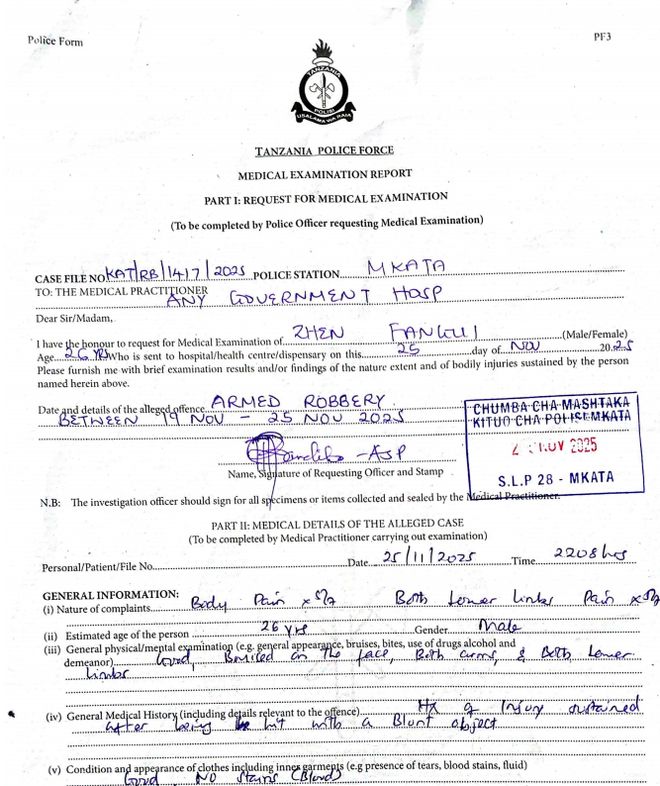 Police Form
PF3
TANZANIA
POLISI
USALAMA WA RAIA
TANZANIA POLICE FORCE
MEDICAL EXAMINATION REPORT
PART I: REQUEST FOR MEDICAL EXAMINATION
(To be completed by Police Officer requesting Medical Examination)
CASE FILE NO KAT/RB/1417/2025 POLICE STATION MKATA
TO: THE MEDICAL PRACTITIONER
ANY GOVERNMENT HOSP
Dear Sir/Madam,
I have the honour to request for Medical Examination of ZHEN (Male/Female)
Age 26 YRS Who is sent to hospital/health centre/dispensary on this 25 day of NOV 2025
Please furnish me with brief examination results and/or findings of the nature extent and of bodily injuries sustained by the person
named herein above.
Date and details of the alleged offence ARMED ROBBERY
BETWEEN 19 NOV - 25 NOV 2025
- ASP
Name, Signature of Requesting Officer and Stamp
CHUMBA CHA MASHTAKA
KITUO CHA POLISI MKATA
NOV 2025
S.L.P 28 - MKATA
N.B: The investigation officer should sign for all specimens or items collected and sealed by the Medical Practitioner.
PART II: MEDICAL DETAILS OF THE ALLEGED CASE
(To be completed by Medical Practitioner carrying out examination)
Personal/Patient/File No. Date 25/11/2025 Time 2208hrs
GENERAL INFORMATION:
(i) Nature of complaints Body Pain x 5/7 Both Lower limbs Pain x 5/7
(ii) Estimated age of the person 26 yrs Gender Male
(iii) General physical/mental examination (e.g. general appearance, bruises, bites, use of drugs alcohol and
demeanor) Good, Bruised on the face, Both arms, & Both Lower
limbs
(iv) General Medical History (including details relevant to the offence) Hx of Injury sustained
after being hit with a Blunt object
(v) Condition and appearance of clothes including inner garments (e.g presence of tears, blood stains, fluid)
Good NO Stains (Blood)